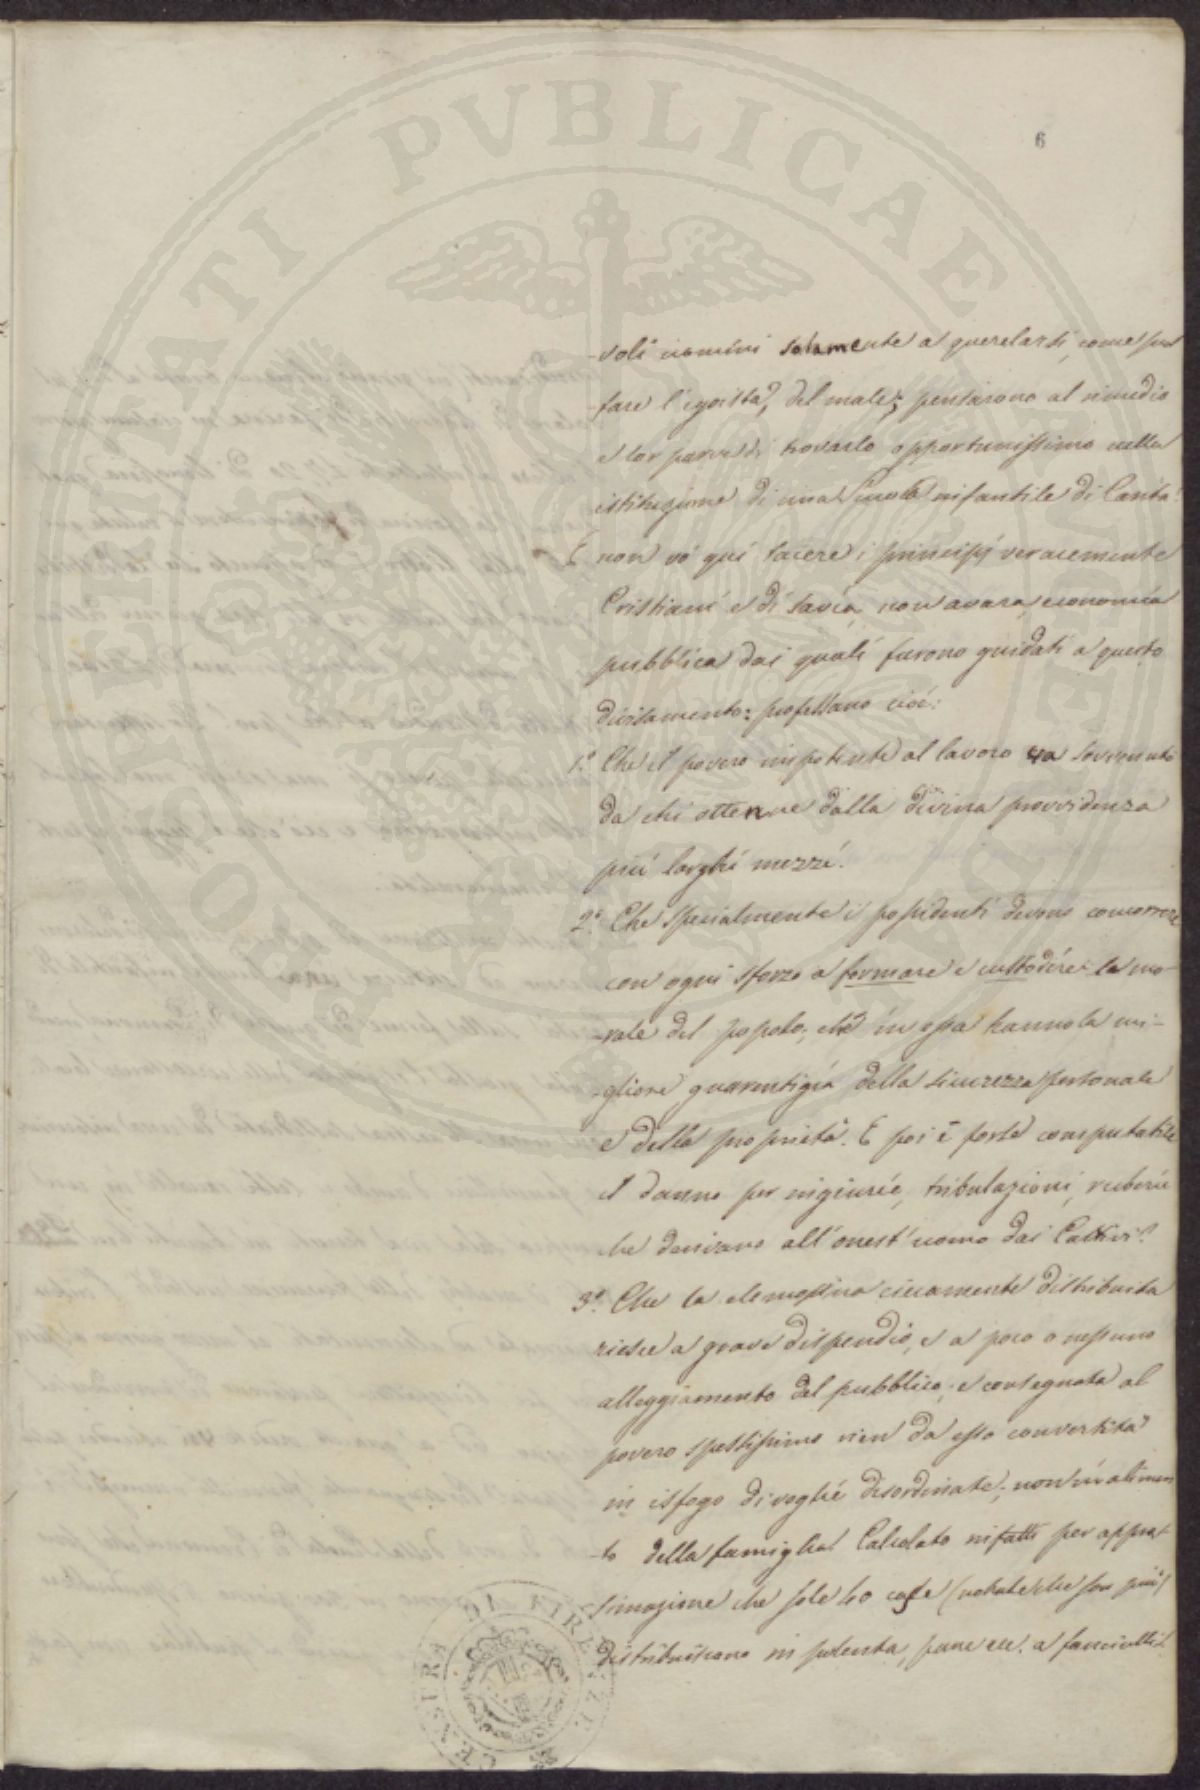 6
-voli uomini solamente a querelarsi, come suol
-fare l'egoista, del male; pensarono al rimedio
e lor parve di trovarlo opportunissimo nella
istituzione di una Scuola infantile di Carità.
E non vò quì tacere i principj veracemente
Cristiani e di savia, non avara economia
pubblica dai quali furono guidati a questo
divisamento: professano cioè:
1.º Che il povero impotente al lavoro sia sovvenuto
da chi ottenne dalla divina provvidenza
più larghi mezzi.
2.º Che specialmente i possidenti devono concorrere
con ogni sforzo a formare e custodire la mo-
-rale del popolo; chè in essa hanno la mi-
-gliore guarentigia della sicurezza personale
e della proprietà. E poi è forse computabile
il danno per ingiurie, tribulazioni, ruberie
che derivano all'onest'uomo dai Cattivi?
3.º Che la elemosina ciecamente distribuita
riesce a grave dispendio, e a poco o nessuno
alleggiamento del pubblico; e consegnata al
povero spessissimo vien da esso convertita
in isfogo di voglie disordinate; non in alimen
-to della famiglia. Calcolato infatti per appros-
simazione che sole 60 case (notate che son più)
distribuiscono in polenta, pane ecc. a fanciulli
PVBLICAE
DI FIRENZE